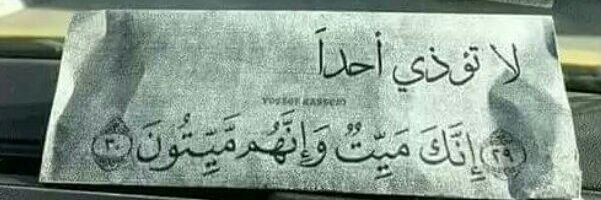 لا تؤذي أحداً
YOUSSEF KASSEM
﴿٢٩﴾ إِنَّكَ مَيِّتٌ وَإِنَّهُم مَّيِّتُونَ ﴿٣٠﴾